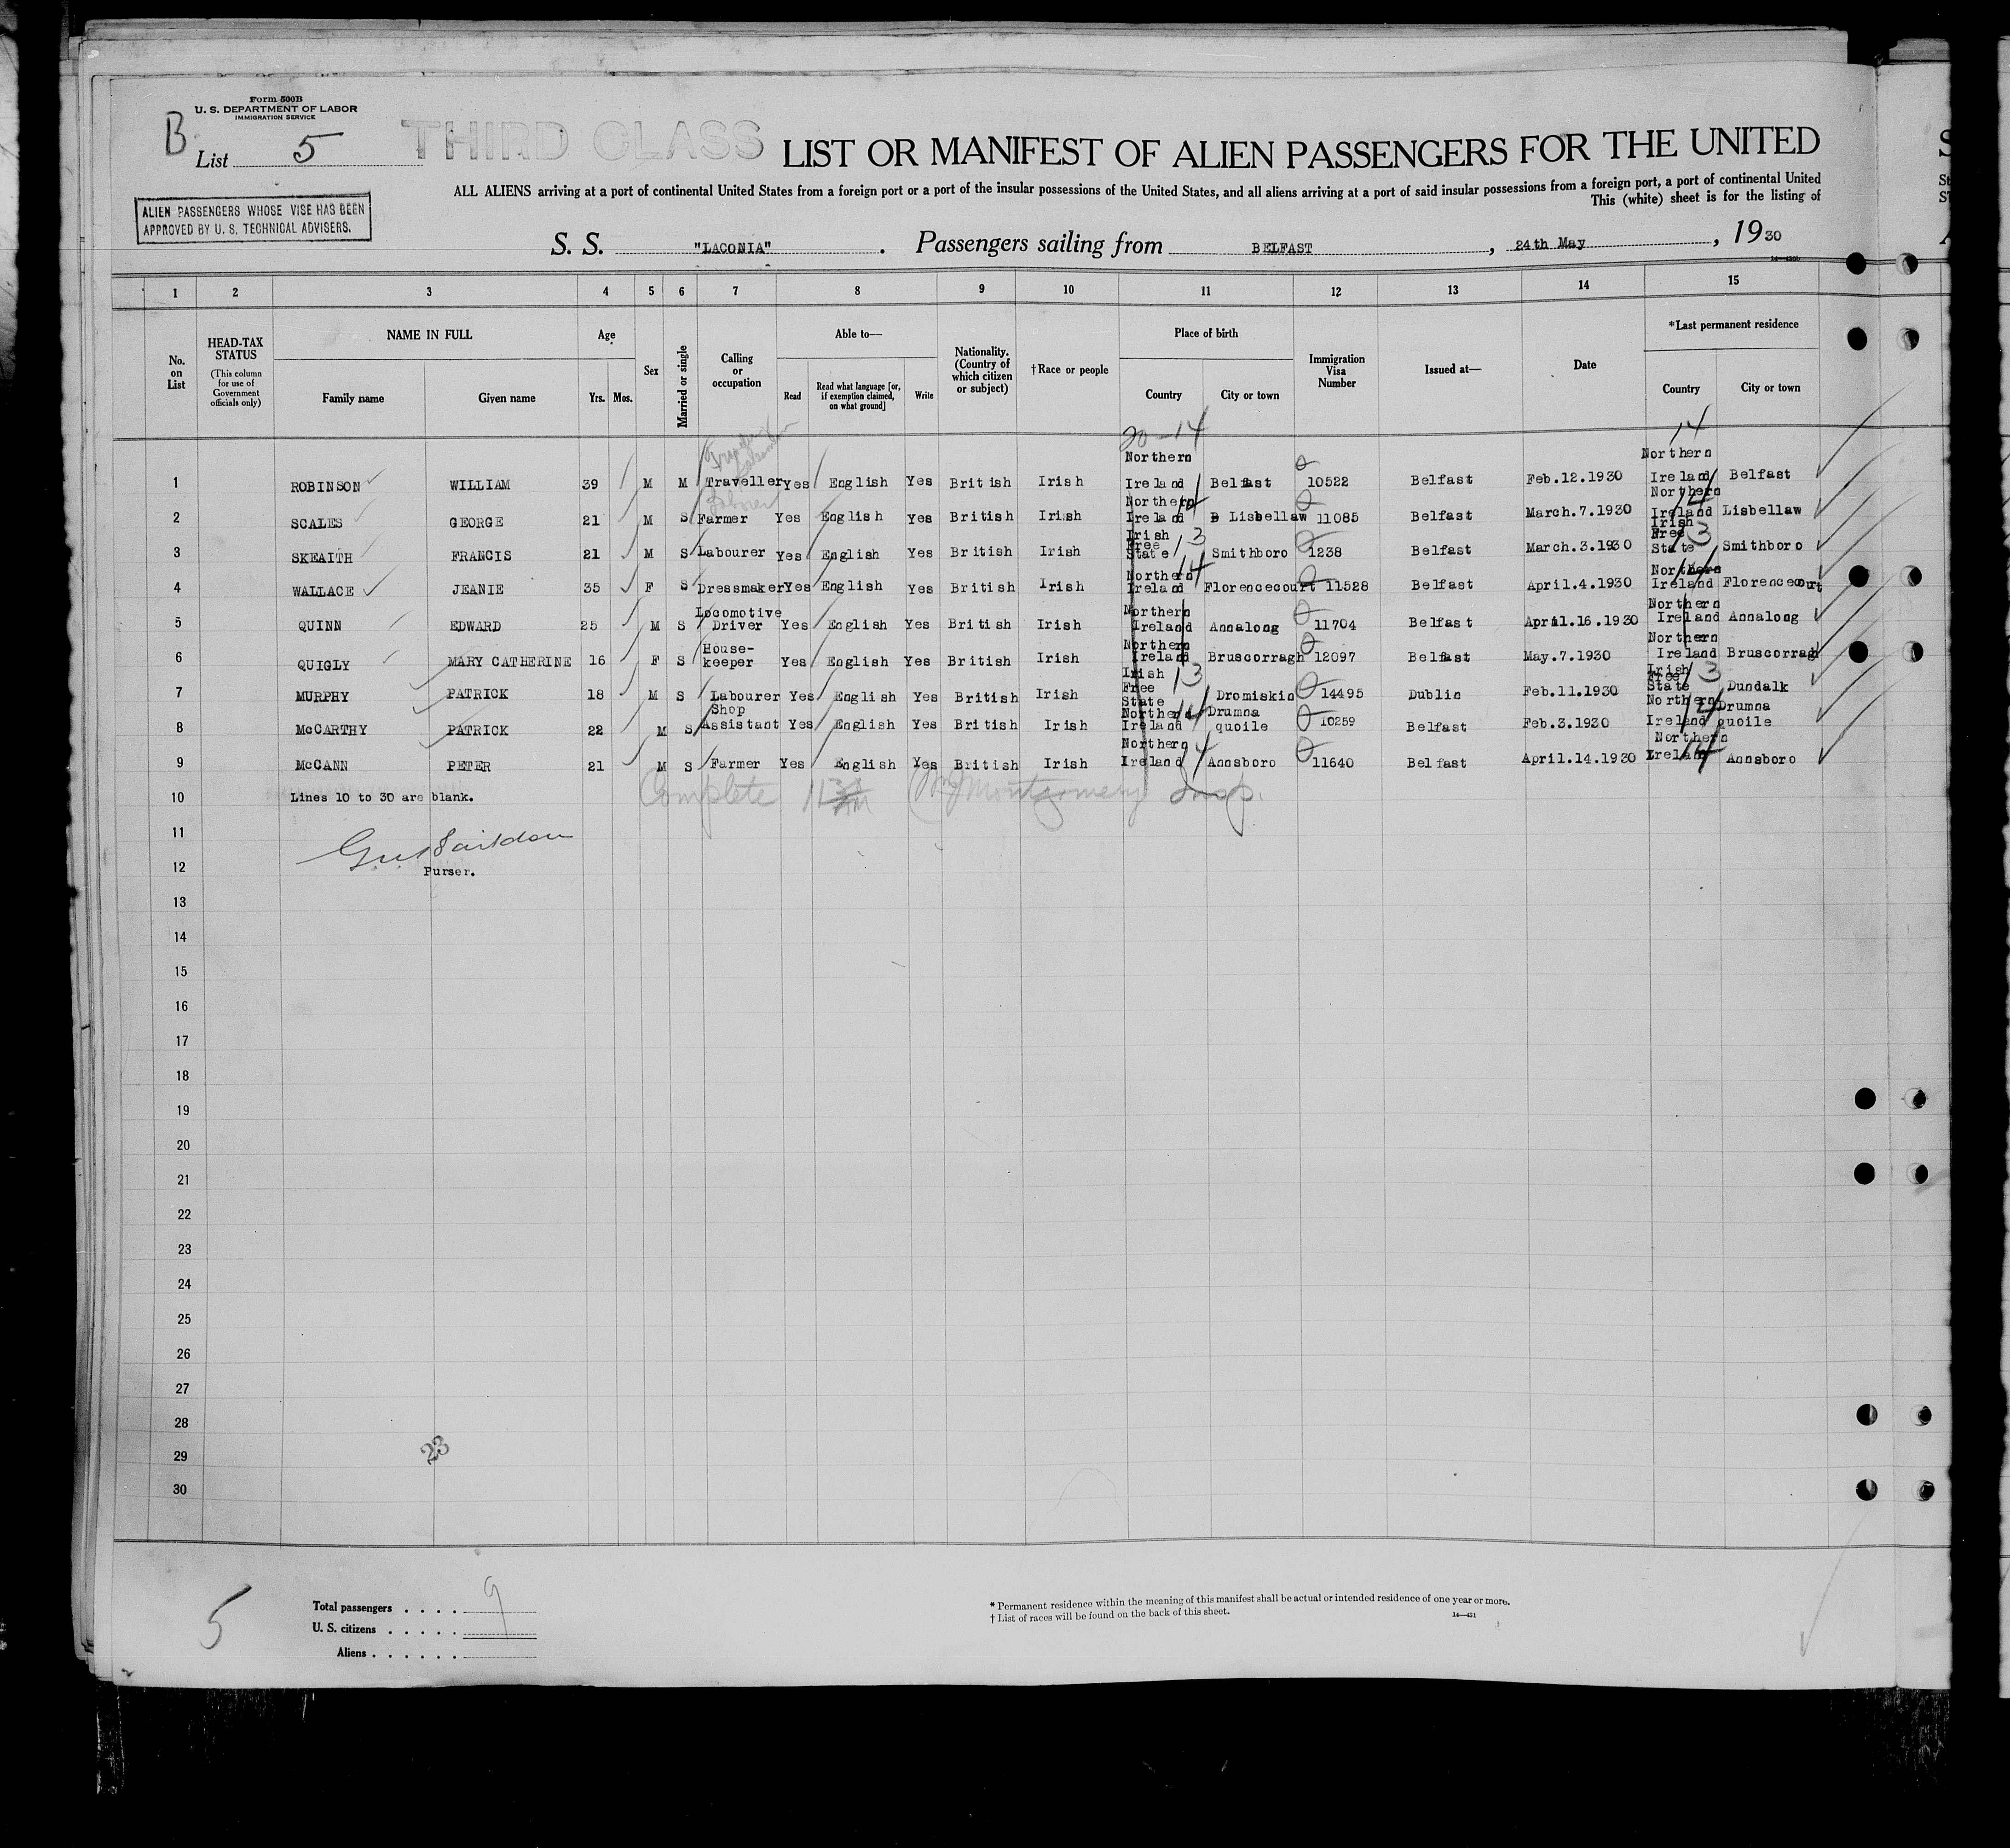 Form 500B
U. S. DEPARTMENT OF LABOR
IMMIGRATION SERVICE
B
List 5
THIRD CLASS
LIST OR MANIFEST OF ALIEN PASSENGERS FOR THE UNITED
ALL ALIENS arriving at a port of continental United States from a foreign port or a port of the insular possessions of the United States, and all aliens arriving at a port of said insular possessions from a foreign port, a port of continental United
This (white) sheet is for the listing of
ALIEN PASSENGERS WHOSE VISE HAS BEEN
APPROVED BY U. S. TECHNICAL ADVISERS.
S. S. "LACONIA". Passengers sailing from BELFAST, 24th May, 1930
1 2 3 4 5 6 7 8 9 10 11 12 13 14 15
No. on List
HEAD-TAX STATUS (This column for use of Government officials only)
NAME IN FULL
Family name Given name
Age
Yrs. Mos.
Sex
Married or single
Calling or occupation
Able to—
Read Read what language [or, if exemption claimed, on what ground] Write
Nationality. (Country of which citizen or subject)
†Race or people
Place of birth
Country City or town
Immigration Visa Number
Issued at—
Date
*Last permanent residence
Country City or town
20-14 14
1 ROBINSON WILLIAM 39 M M Traveller Yes English Yes British Irish Northern Ireland Belfast 10522 Belfast Feb.12.1930 Northern Ireland Belfast
2 SCALES GEORGE 21 M S Farmer Yes English Yes British Irish Northern Ireland 14 Lisbellaw 11085 Belfast March.7.1930 Northern Ireland 14 Lisbellaw
3 SKEAITH FRANCIS 21 M S Labourer Yes English Yes British Irish Irish Free State 13 Smithboro 1238 Belfast March.3.1930 Irish Free State 13 Smithboro
4 WALLACE JEANIE 35 F S Dressmaker Yes English Yes British Irish Northern Ireland 14 Florencecourt 11528 Belfast April.4.1930 Northern Ireland 14 Florencecourt
5 QUINN EDWARD 25 M S Locomotive Driver Yes English Yes British Irish Northern Ireland Annalong 11704 Belfast April.16.1930 Northern Ireland Annalong
6 QUIGLY MARY CATHERINE 16 F S House-keeper Yes English Yes British Irish Northern Ireland Bruscorragh 12097 Belfast May.7.1930 Northern Ireland Bruscorragh
7 MURPHY PATRICK 18 M S Labourer Yes English Yes British Irish Irish Free State 13 Dromiskin 14495 Dublin Feb.11.1930 Irish Free State 13 Dundalk
8 McCARTHY PATRICK 22 M S Shop Assistant Yes English Yes British Irish Northern Ireland 14 Drumna quoile 10259 Belfast Feb.3.1930 Northern Ireland 14 Drumna quoile
9 McCANN PETER 21 M S Farmer Yes English Yes British Irish Northern Ireland 14 Annsboro 11640 Belfast April.14.1930 Northern Ireland 14 Annsboro
10 Lines 10 to 30 are blank. Complete Montgomery Insp.
11
12 Purser.
13
14
15
16
17
18
19
20
21
22
23
24
25
26
27
28
29 23
30
5
Total passengers . . . . 9
U. S. citizens . . . . .
Aliens . . . . . .
* Permanent residence within the meaning of this manifest shall be actual or intended residence of one year or more.
† List of races will be found on the back of this sheet.
14—421